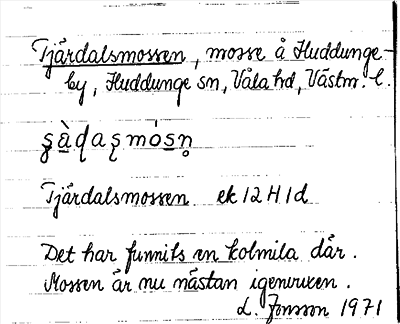 Tjärdalsmossen, mosse å Huddunge-
by, Huddunge sn, Våla hd, Västm. l.
Tjärdalsmossen ek 12 H 1d
Det har funnits en kolmila där.
Mossen är nu nästan igenvuxen.
L. Jonsson 1971